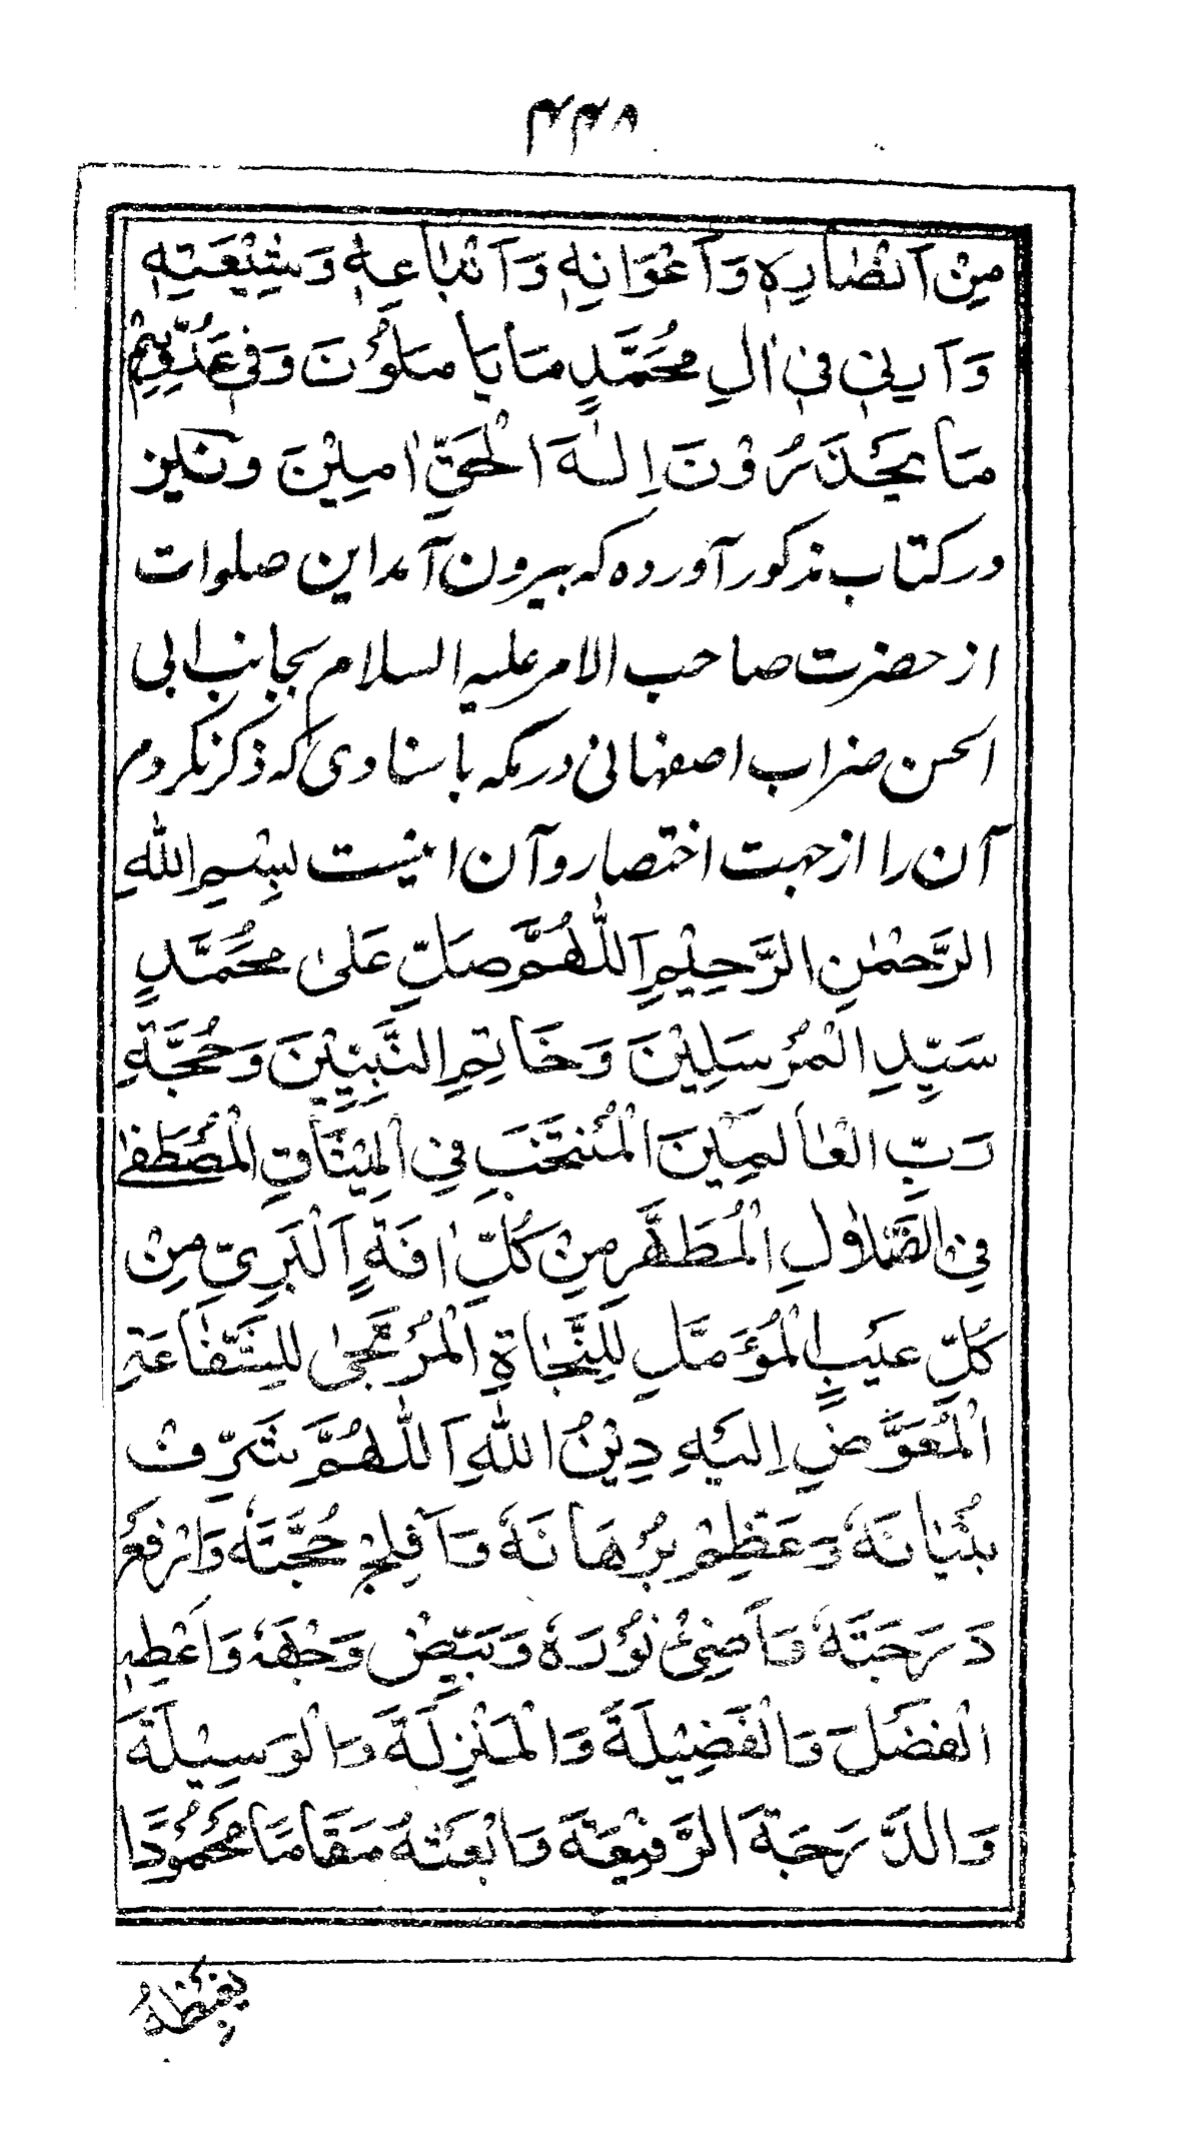 ۴۴۸
مِنْ اَنْصٰارِهٖ وَاَعْوَانِهٖ وَاَتْبٰاعِهٖ وَشِيْعَتِهٖ
وَاَرِنِیْ فِیْ اٰلِ مُحَمَّدٍ مَا يَاْمَلُوْنَ وَفِیْ عَدُوِّهِمْ
مَا يَحْذَرُوْنَ اِلٰهَ الْحَقِّ اٰمِيْنَ ونیز
در کتاب مذکور آورده که بیرون آمد این صلوات
از حضرت صاحب الامر علیه السلام بجانب ابی
الحسن ضراب اصفهانی در مکه باسنادی که ذکر نکردم
آن را از جهت اختصار و آن اینست بِسْمِ اللّٰهِ
الرَّحْمٰنِ الرَّحِيْمِ اَللّٰهُمَّ صَلِّ عَلٰى مُحَمَّدٍ
سَيِّدِ الْمُرْسَلِيْنَ وَخَاتِمِ النَّبِيِّيْنَ وَحُجَّةِ
رَبِّ الْعٰالَمِيْنَ الْمُنْتَجَبِ فِی الْمِيْثَاقِ الْمُصْطَفٰى
فِی الضَّلاٰلِ الْمُطَهَّرِ مِنْ كُلِّ اٰفَةٍ اَلْبَرِیِّ مِنْ
كُلِّ عَيْبٍ الْمُؤَمَّلِ لِلنَّجٰاةِ الْمُرْتَجٰى لِلشَّفٰاعَةِ
الْمُفَوَّضِ اِلَيْهِ دِيْنُ اللّٰهِ اَللّٰهُمَّ شَرِّفْ
بُنْيٰانَهٗ وَعَظِّمْ بُرْهَانَهٗ وَاَفْلِجْ حُجَّتَهٗ وَارْفَعْ
دَرَجَتَهٗ وَاَضِئْ نُوْرَهٗ وَبَيِّضْ وَجْهَهٗ وَاَعْطِهِ
الْفَضْلَ وَالْفَضِيْلَةَ وَالْمَنْزِلَةَ وَالْوَسِيْلَةَ
وَالدَّرَجَةَ الرَّفِيْعَةَ وَابْعَثْهُ مَقَامًا مَحْمُوْدًا
يَغْبِطُهُ